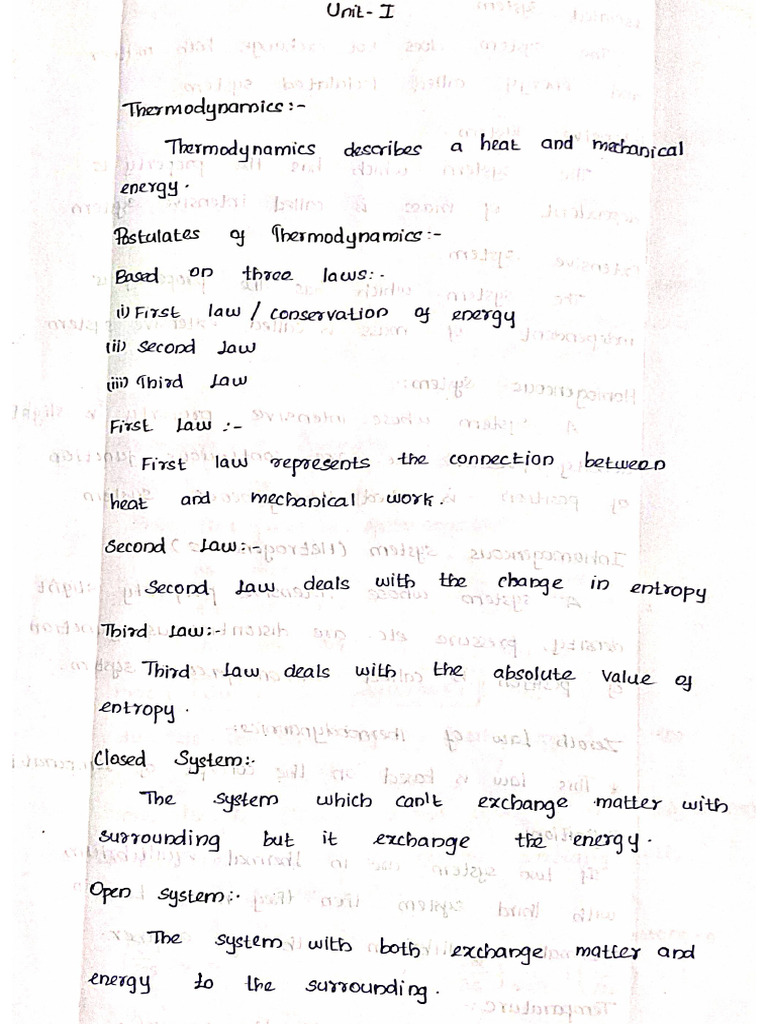 Unit-I
Thermodynamics:-
Thermodynamics describes a heat and mechanical
energy.
Postulates of Thermodynamics:-
Based on three laws:-
(i) First law / conservation of energy
(ii) Second Law
(iii) Third Law
First Law :-
First law represents the connection between
heat and mechanical work.
Second Law:-
Second Law deals with the change in entropy
Third Law:-
Third Law deals with the absolute value of
entropy.
Closed System:-
The system which can't exchange matter with
surrounding but it exchange the energy.
Open system:-
The system with both exchange matter and
energy to the surrounding.